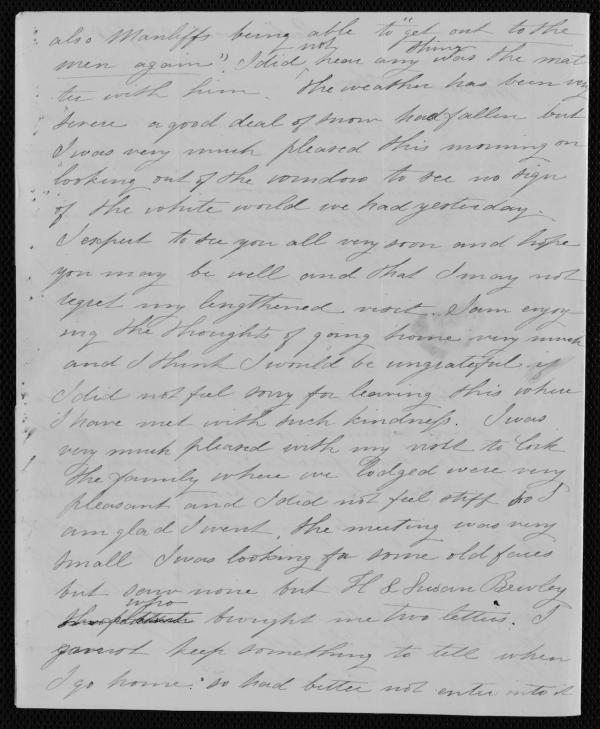 also Manliffs being able to "get out to the
men again" I did not hear any thing was the mat
ter with him. The weather has been very
severe a good deal of snow had fallen but
I was very much pleased this morning on
looking out of the window to see no sign
of the white world we had yesterday.
I expect to see you all very soon and hope
you may be well and that I may not
regret my lengthened visit. I am enjoy
ing the thoughts of going home very much
and I think I would be ungrateful if
I did not feel sorry for leaving this where
I have met with such kindness. I was
very much pleased with my visit to Cork
the family where we lodged were very
pleasant and I did not feel stiff so I
am glad I went, the meeting was very
small I was looking for some old faces
but saw none but H & Susan Bewley
who brought me two letters. I
must keep something to tell when
I go home: so had better not enter into it